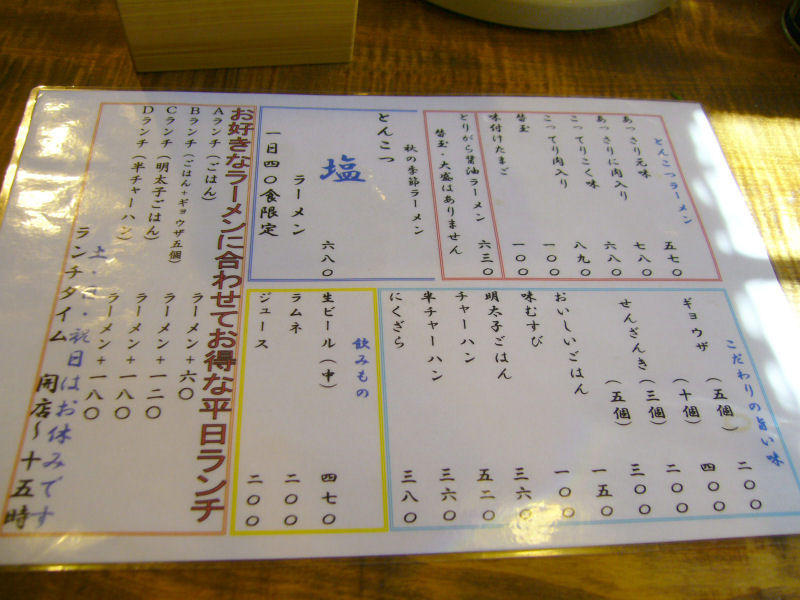 とんこつラーメン
あっさり元味 五七〇
あっさりに肉入り 七八〇
こってりこく味 六八〇
こってり肉入り 八九〇
替玉 一〇〇
味付けたまご 一〇〇
とりがら醤油ラーメン 六三〇
替玉・大盛はありません
秋の季節ラーメン
とんこつ
塩
ラーメン 六八〇
一日四〇食限定
こだわりの旨い味
ギョウザ （五個） 二〇〇
（十個） 四〇〇
せんざんき （三個） 二〇〇
（五個） 三〇〇
おいしいごはん 一五〇
味むすび 一〇〇
明太子ごはん 三六〇
チャーハン 五二〇
半チャーハン 三六〇
にくざら 三八〇
飲みもの
生ビール（中） 四七〇
ラムネ 二〇〇
ジュース 二〇〇
お好きなラーメンに合わせてお得な平日ランチ
Aランチ（ごはん） ラーメン＋六〇
Bランチ（ごはん＋ギョウザ五個） ラーメン＋一二〇
Cランチ（明太子ごはん） ラーメン＋一八〇
Dランチ（半チャーハン） ラーメン＋一八〇
土・日・祝日はお休みです
ランチタイム 開店～十五時